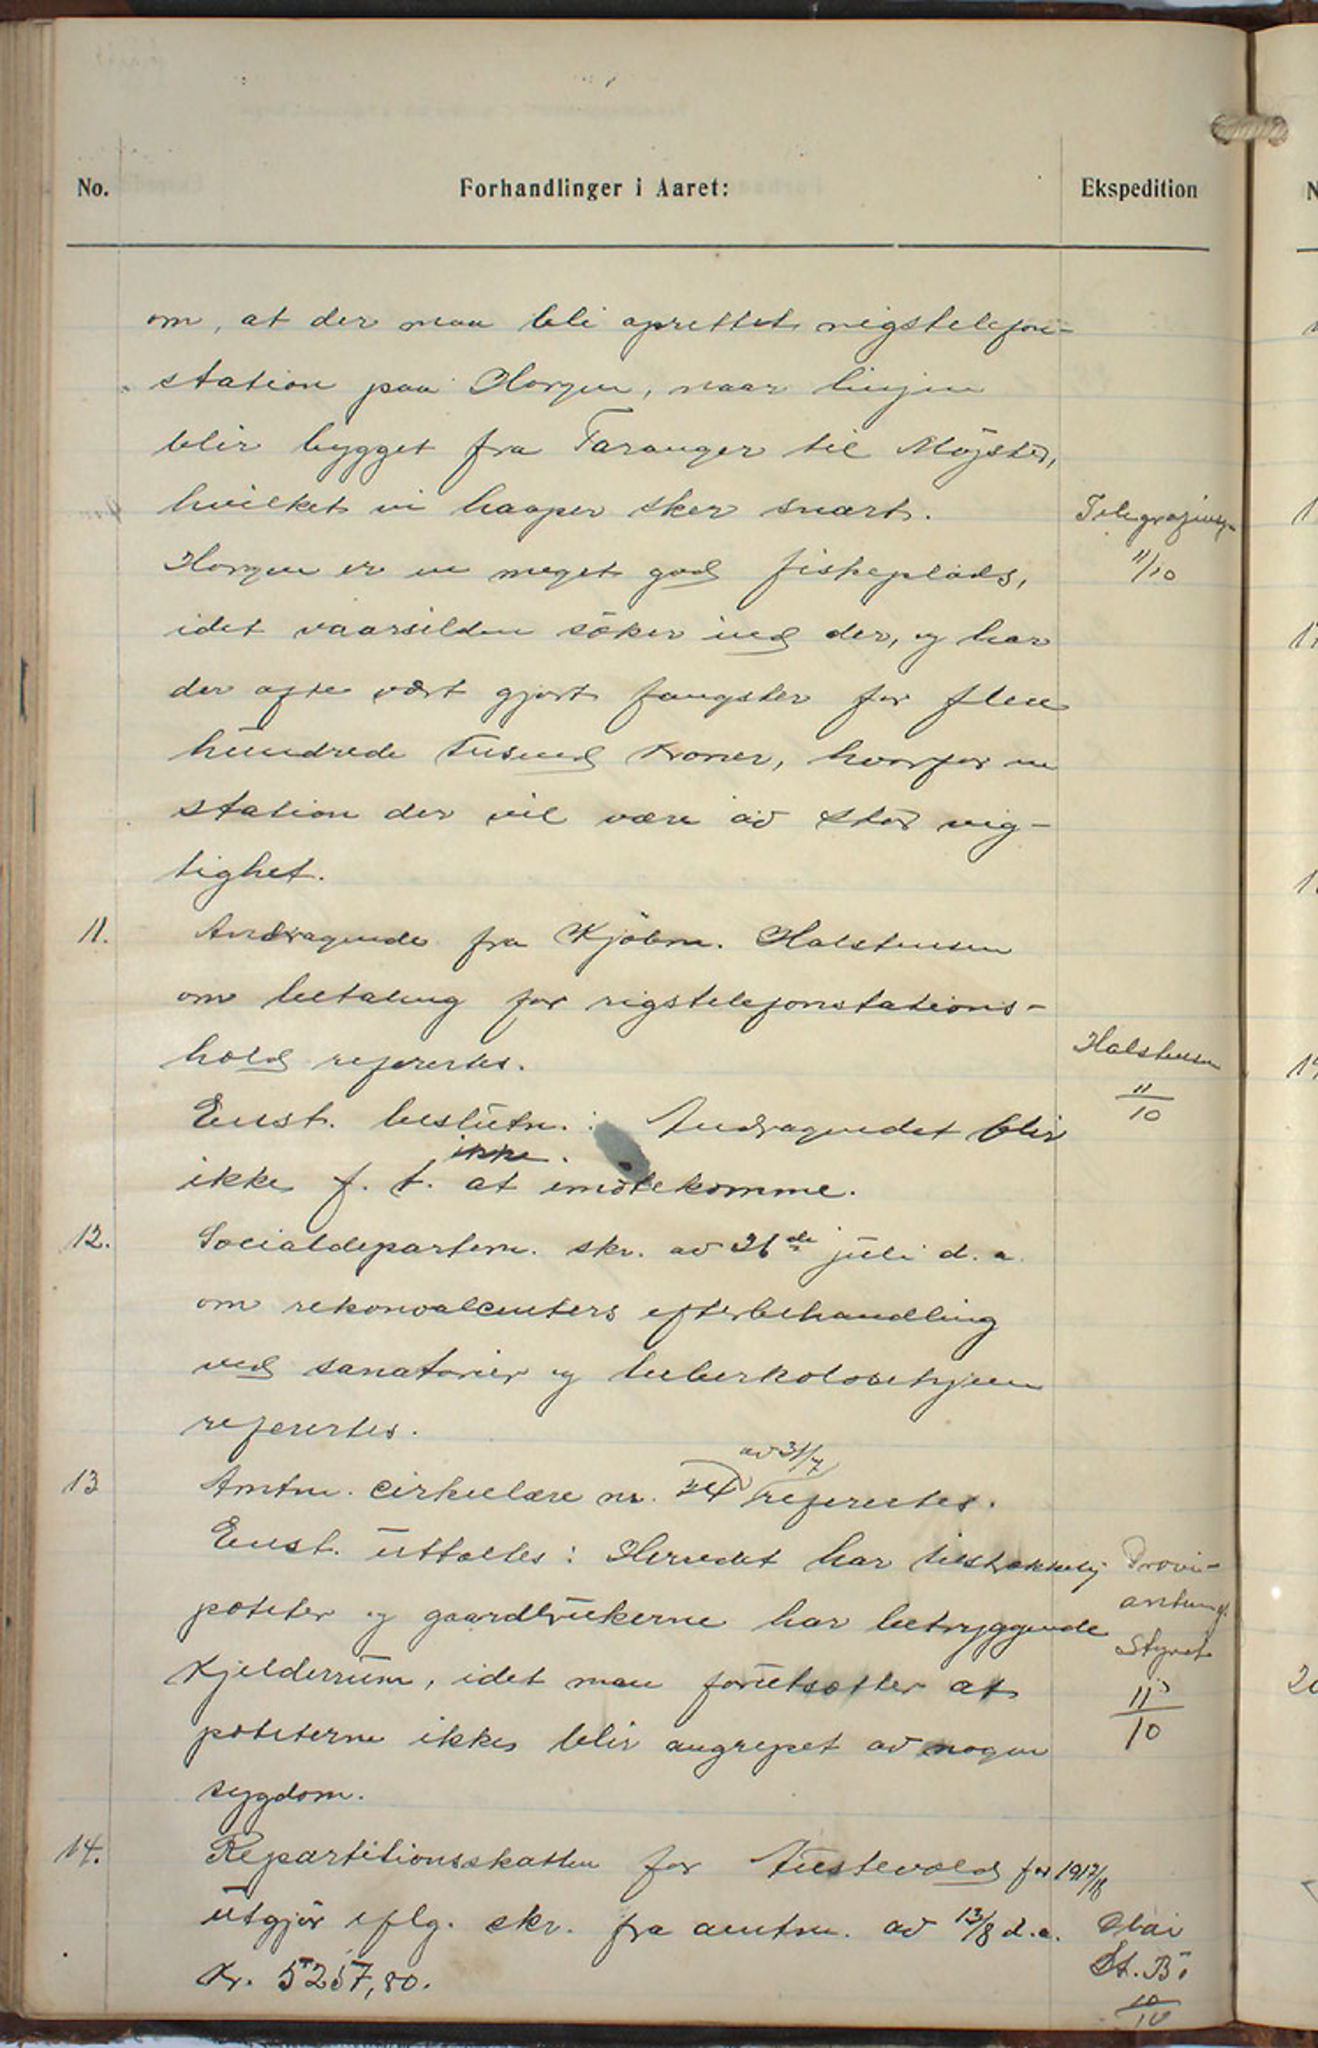 No.
Forhandlinger i Aaret:
Ekspedition
om, at der maa bli oprettet rigstelefon-
station paa Horgen, naar linjen
blir bygget fra Taranger til Møgster,
hvilket vi haaper sker snart.
Horgen er en meget god fiskeplads,
idet vaarsilden søker ind der, og har
der ofte vært gjort fangster for flere
hundrede tusend kroner, hvorfor en
station der vil være av stor vig-
tighet.
Telegrafinsp.
11/10
11. Andragende fra Kjøbm. Halstensen
om betaling for rigstelefonstations-
hold refertes.
Enst. beslutn.: Andragendet blir
ikke
ikke f. t. at imøtekomme.
Halstensen
11/10
12. Socialdepartem. skr. av 26de juli d. a.
om rekonvalcenters efterbehandling
ved sanatorier og tuberkolosehjem
refertes.
av 31/7
13 Amtm. cirkulære nr. refertes.
Enst. uttaltes: Herredet har tilstrækkelig
poteter og gaardbrukerne har betryggende
kjelderrum, idet man forutsætter at
poteterne ikke blir angrepet av nogen
sygdom.
Provi-
anterings
Styret
11/10
14. Repartitionsskatten for Austevold for 1917/18
utgjør iflg. skr. fra amtm. av 13/8 d.a.
Kr. 5257,80.
St. Bø
10/10